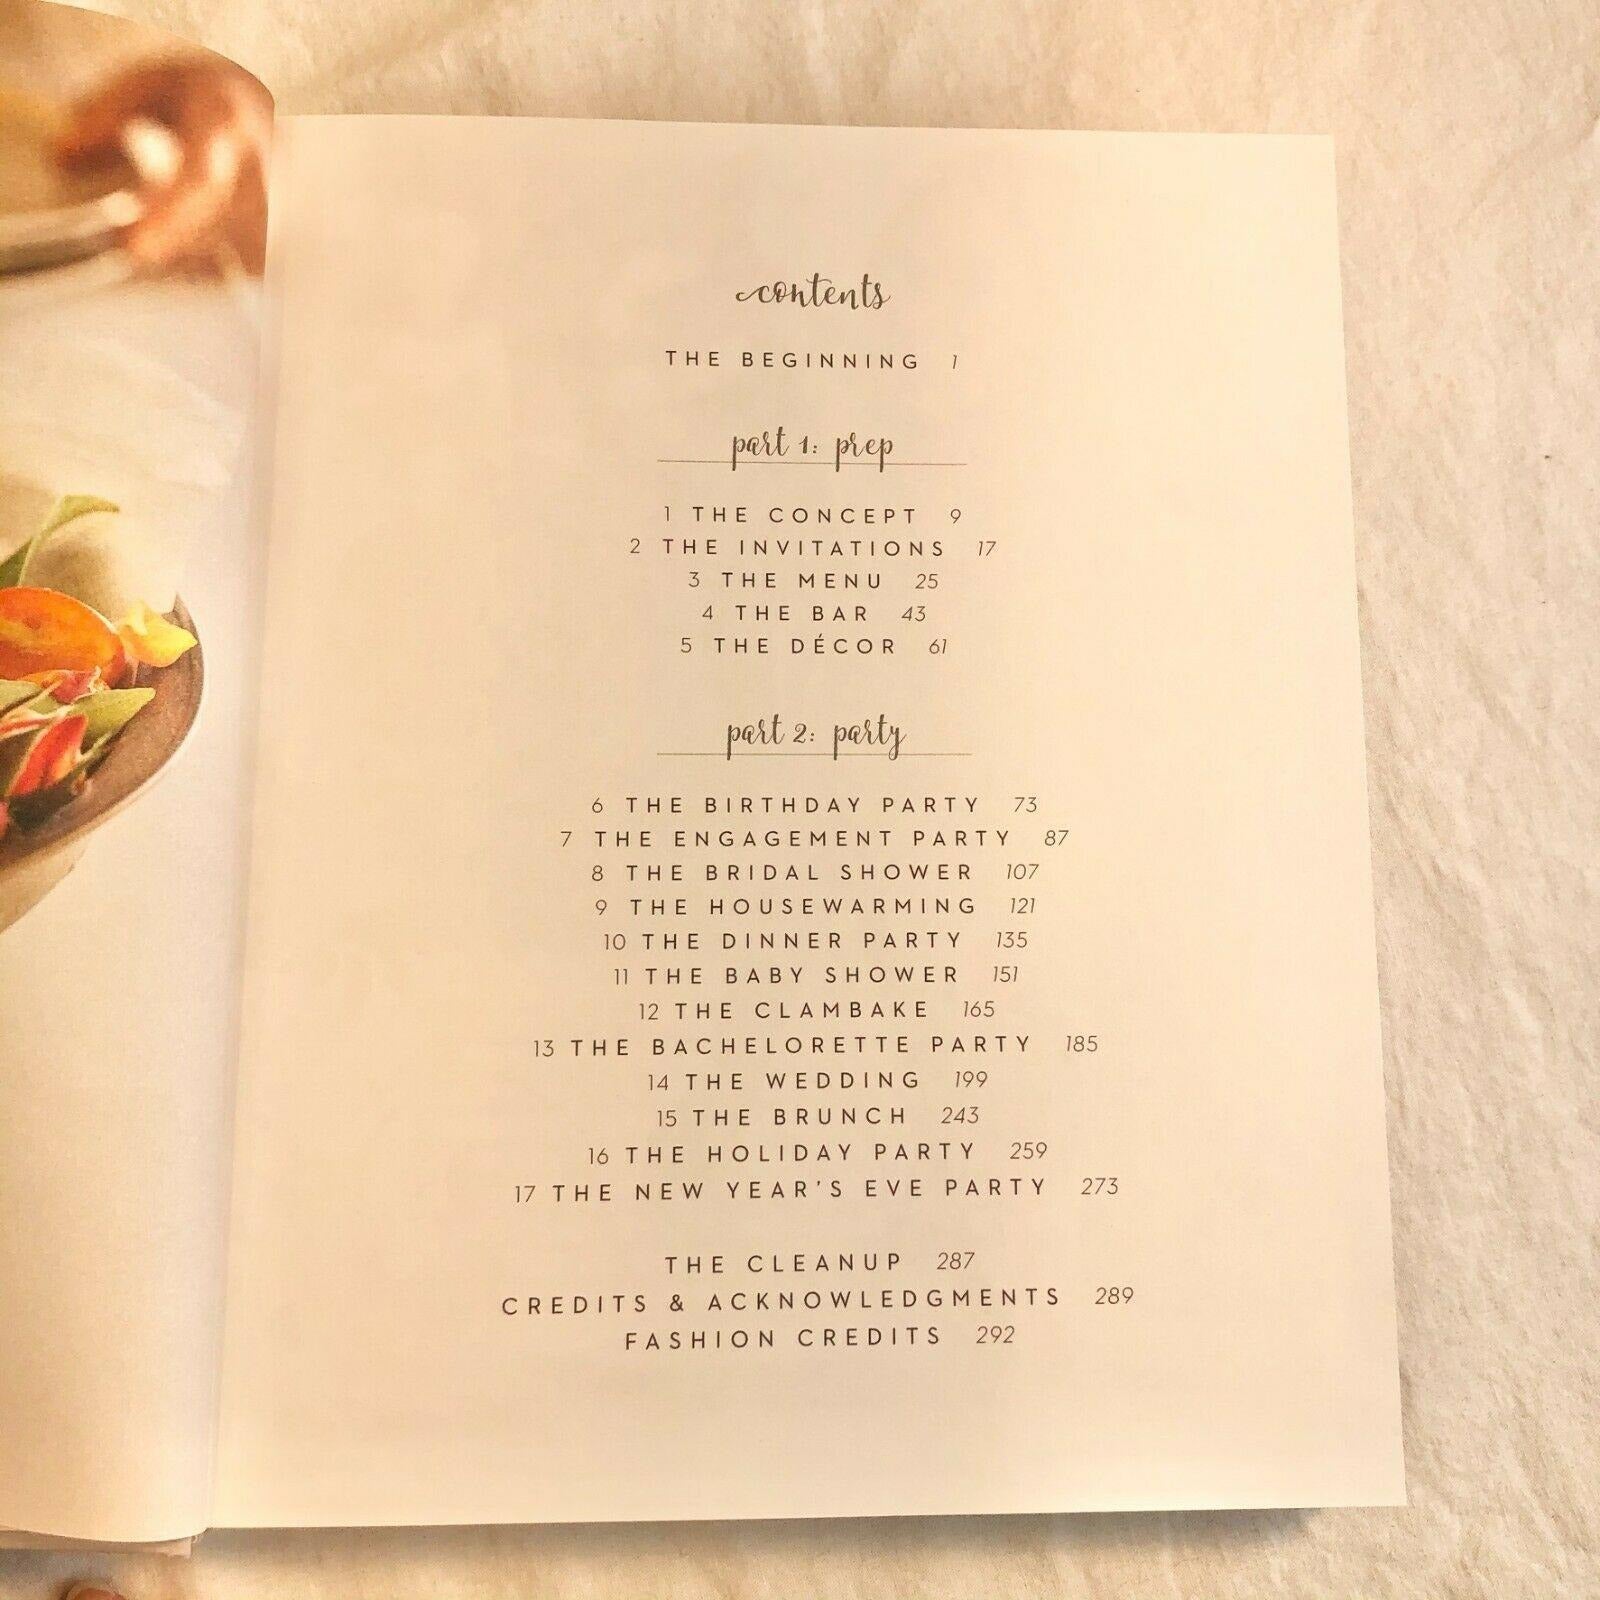 contents
THE BEGINNING 1
part 1: prep
1 THE CONCEPT 9
2 THE INVITATIONS 17
3 THE MENU 25
4 THE BAR 43
5 THE DÉCOR 61
part 2: party
6 THE BIRTHDAY PARTY 73
7 THE ENGAGEMENT PARTY 87
8 THE BRIDAL SHOWER 107
9 THE HOUSEWARMING 121
10 THE DINNER PARTY 135
11 THE BABY SHOWER 151
12 THE CLAMBAKE 165
13 THE BACHELORETTE PARTY 185
14 THE WEDDING 199
15 THE BRUNCH 243
16 THE HOLIDAY PARTY 259
17 THE NEW YEAR'S EVE PARTY 273
THE CLEANUP 287
CREDITS & ACKNOWLEDGMENTS 289
FASHION CREDITS 292